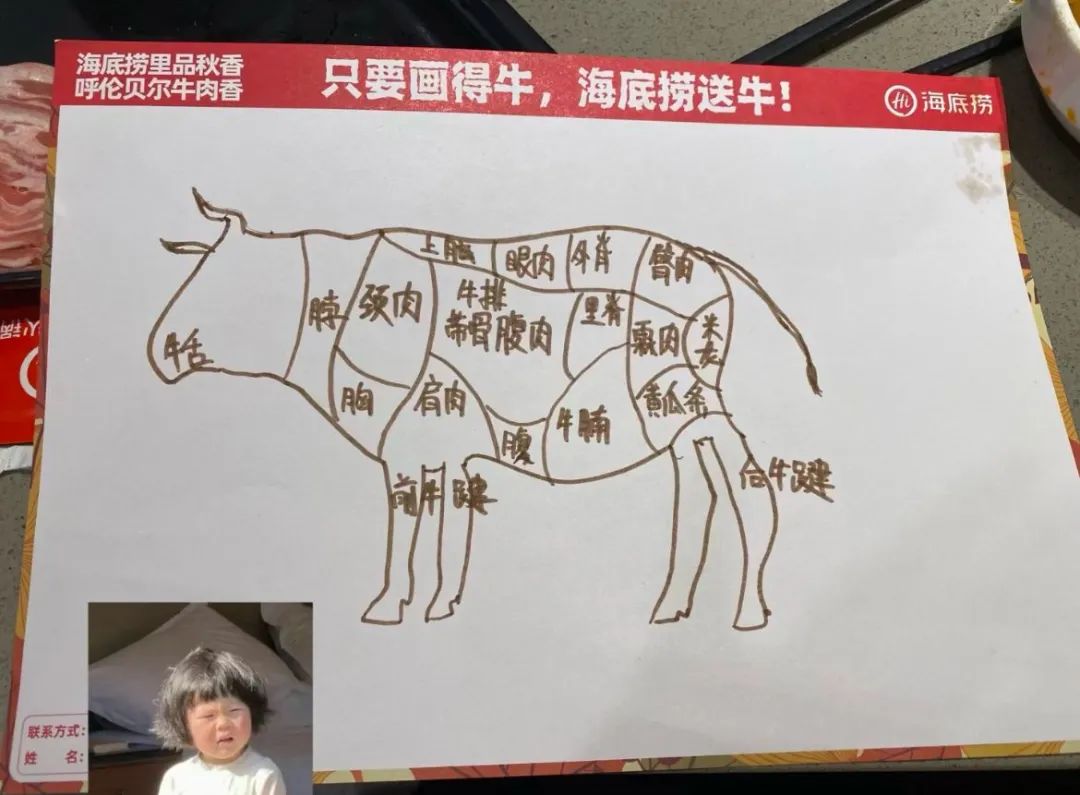 海底捞里品秋香
呼伦贝尔牛肉香
只要画得牛，海底捞送牛！
Hi 海底捞
上脑
眼肉
外脊
臀肉
脖
颈肉
牛排
带骨腹肉
里脊
肉
米
龙
牛舌
胸
肩肉
腹
牛腩
黄瓜条
前牛踺
后牛踺
联系方式：
姓 名：